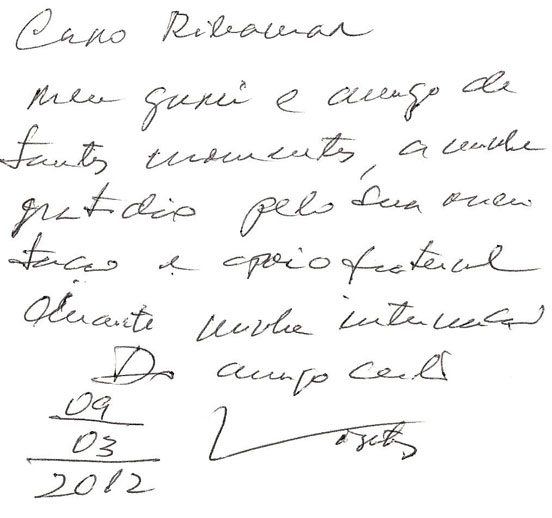 Caro Ribamar
meu guru e amigo de
tantos momentos, a minha
gratidão pelo sua orien
tacao e apoio fraternal
durante minha internacao
Do amigo certo
09
03
2012